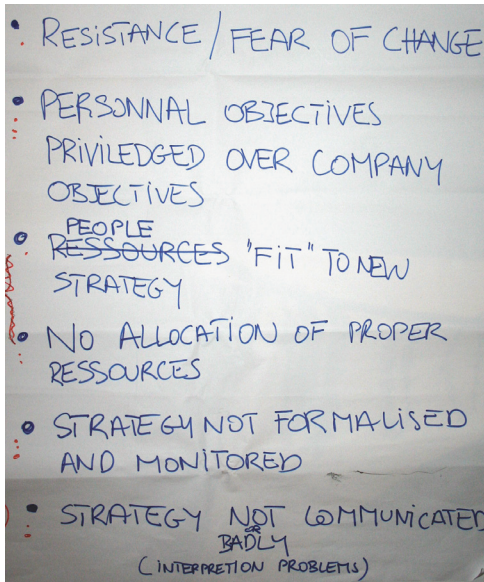 RESISTANCE / FEAR OF CHANGE
PERSONNAL OBJECTIVES
PRIVILEDGED OVER COMPANY
OBJECTIVES
PEOPLE
RESSOURCES "FIT" TO NEW
STRATEGY
NO ALLOCATION OF PROPER
RESSOURCES
STRATEGY NOT FORMALISED
AND MONITORED
STRATEGY NOT COMMUNICATED
OR
BADLY
(INTERPRETION PROBLEMS)